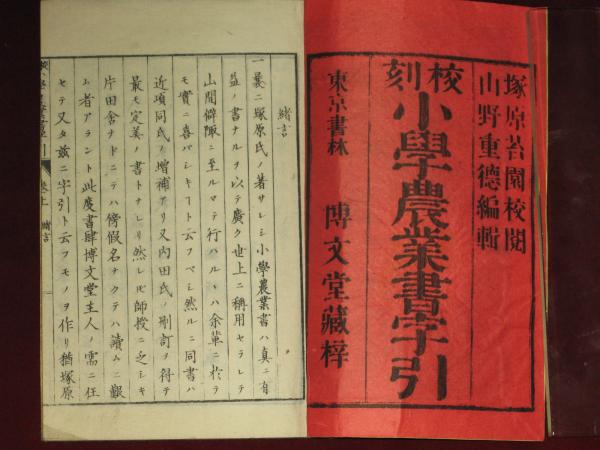 塚原苔園校閲
山野重德編輯
校刻
小學農業書字引
東京書林　博文堂藏梓
緒言
一曩ニ塚原氏ノ著サレシ小學農業書ハ真ニ有
益ノ書ナルヲ以テ廣ク世上ニ稱用セラレテ
山間僻陬ニ至ルマテ行ハルヽハ余輩ニ於テ
モ實ニ喜バシキヿト云フベシ然ルニ同書ハ
近頃同氏ノ増補アリ又内田氏ノ刪訂ヲ得テ
最モ定善ノ書トナレリ然レ𪜈師授ニ乏シキ
片田舎ナドニテハ傍假名ナクテハ讀ムニ艱
ム者アラント此度書肆博文堂主人ノ需ニ任
セテ又タ茲ニ字引ト云フモノヲ作リ猶塚原
巻上　緒言